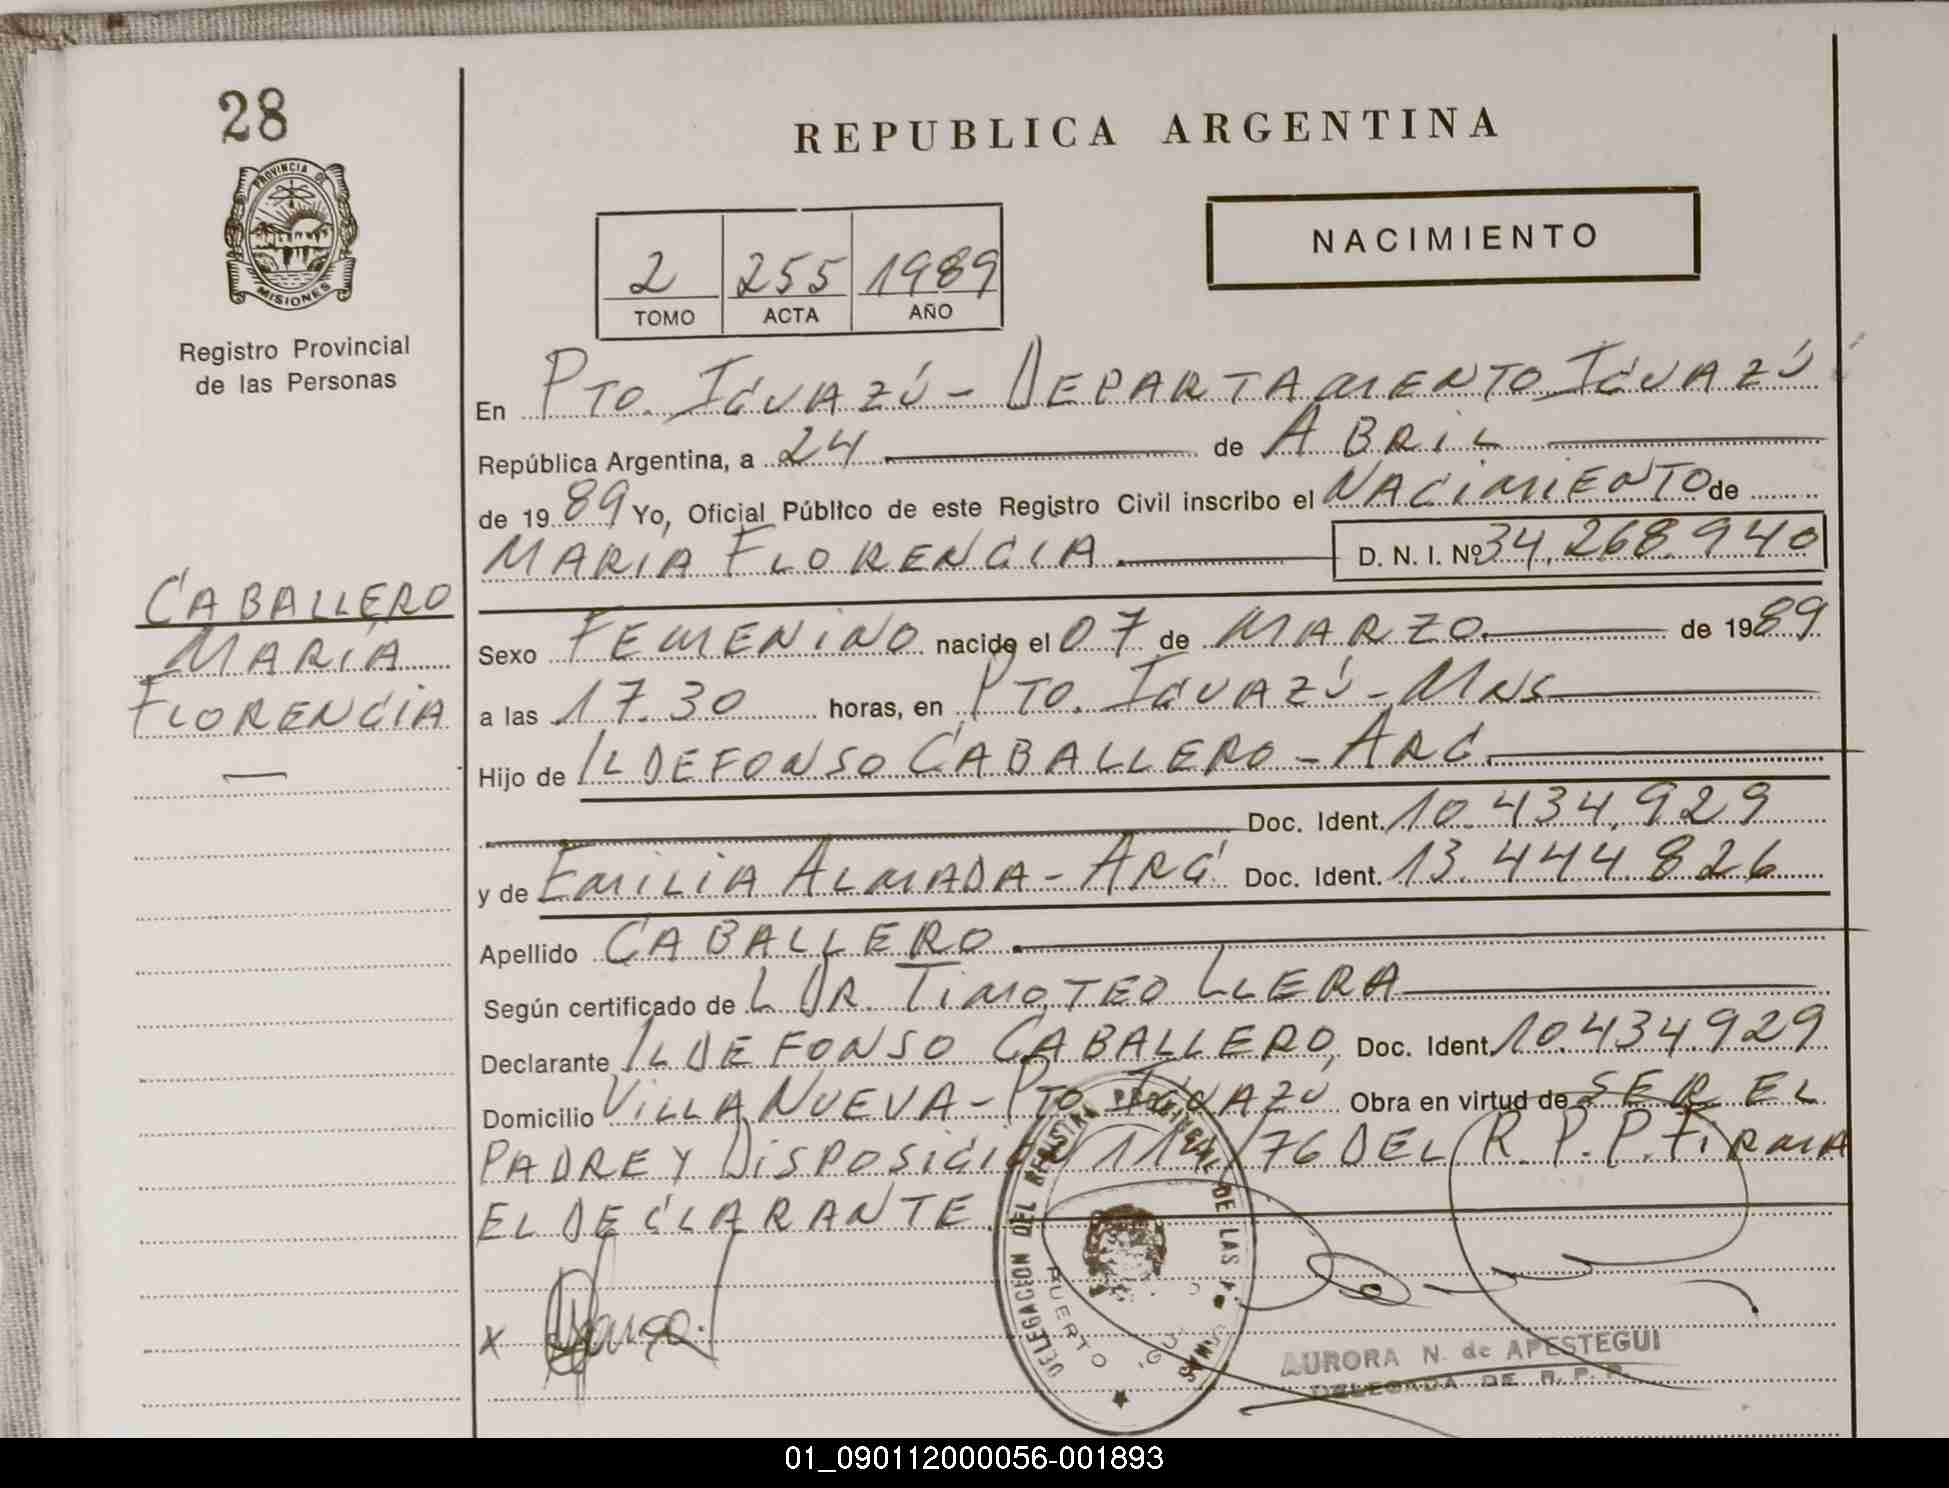 28
REPUBLICA ARGENTINA
PROVINCIA DE
MISIONES
Registro Provincial
de las Personas
NACIMIENTO
2 255 1989
TOMO ACTA AÑO
En PTO. IGUAZÚ - DEPARTAMENTO IGUAZÚ
República Argentina, a 24 de ABRIL
de 1989 Yo, Oficial Público de este Registro Civil inscribo el NACIMIENTO de
MARIA FLORENCIA. D. N. I. Nº 34.268.940
CABALLERO
MARÍA
FLORENCIA
Sexo FEMENINO nacido el 07 de MARZO. de 1989
a las 17.30 horas, en PTO. IGUAZÚ - MNS
Hijo de ILDEFONSO CABALLERO - ARG.
Doc. Ident. 10.434.929
y de EMILIA ALMADA - ARG Doc. Ident. 13.444.826
Apellido CABALLERO.
Según certificado de L DR. TIMOTEO LLERA
Declarante ILDEFONSO CABALLERO, Doc. Ident. 10.434.929
Domicilio VILLA NUEVA - PTO. IGUAZÚ Obra en virtud de SER EL
PADRE Y DISPOSICIÓN 11/76 DEL R.P.P. FIRMA
EL DECLARANTE.
X
DELEGACION DEL REGISTRO PROVINCIAL DE LAS
PUERTO
AURORA N. de APESTEGUI
DELEGADA DE R. P. P.
01_090112000056-001893